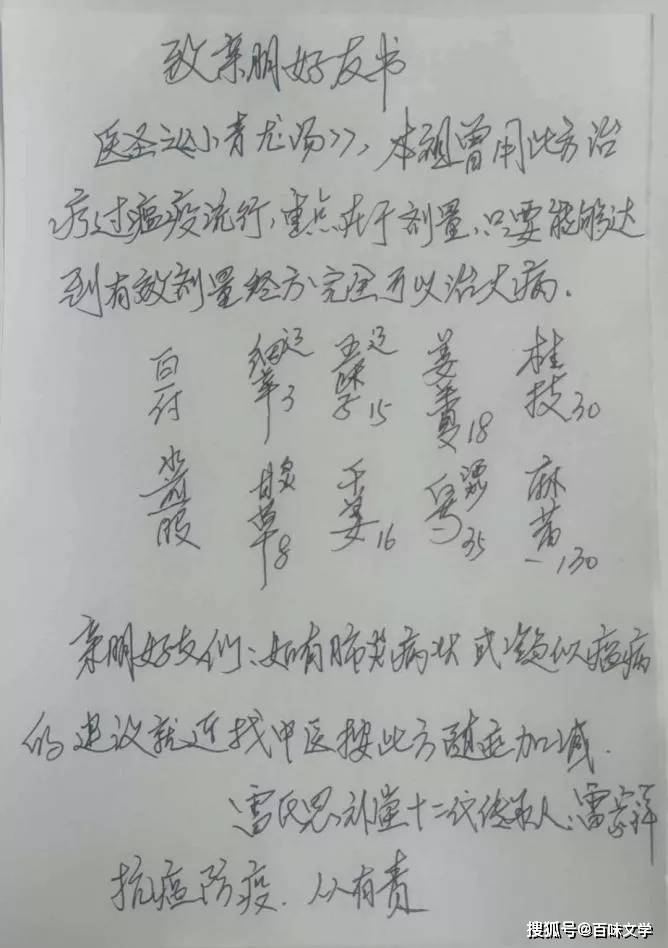 致亲朋好友书
医圣之《小青龙汤》，本祖曾用此方治
疗过瘟疫流行，重点在于剂量，只要能够达
到有效剂量经方完全可以治大病.
百付 细辛辽3 五味子辽15 姜半夏18 桂枝30
水煎服 炙甘草8 干姜16 白芍35 麻黄130
亲朋好友们：如有肺炎病状或疑似瘟病
的建议就近找中医按此方随症加减.
雷氏思补堂十二代传承人：雷 祥
抗瘟防疫.从有青
搜狐号@百味文学